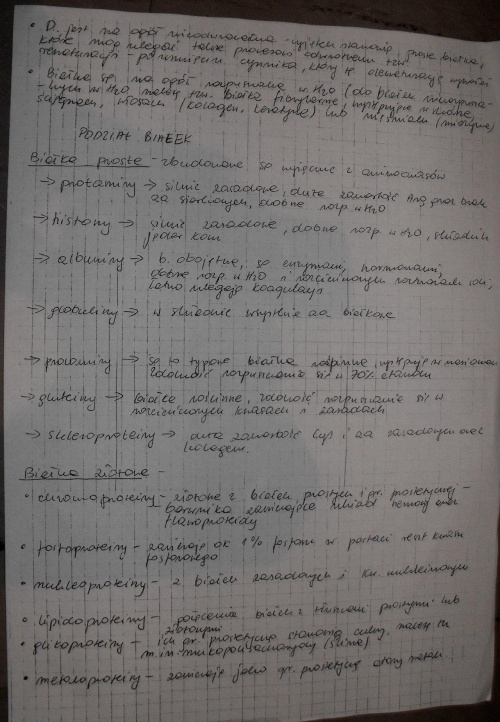 • D. jest na ogół nieodwracalna - wyjątek stanowią proste białka,
które mogą ulegać także procesowi odwrotnemu tzn.
renaturacji - po usunięciu czynnika, który tę denaturację wywołał
• Białka są na ogół rozpuszczalne w H2O (do białek nierozpuszczal-
-nych w H2O należą tzn. białka fibrylarne, występujące w skórze,
ścięgnach, włosach (kolagen, keratyna) lub mięśniach (miozyna)
PODZIAŁ BIAŁEK
Białka proste - zbudowane są wyłącznie z aminokwasów
→ protaminy → silnie zasadowe, duża zawartość Arg, oraz brak
aa siarkowych, dobrze rozp w H2O
→ histony → silnie zasadowe, dobrze rozp w H2O, składnik
jąder kom
→ albuminy → b. obojętne, są enzymami, hormonami,
dobrze rozp w H2O i rozcieńczonych roztworach soli,
łatwo ulegają koagulacji
→ globuliny → w składzie wszystkie aa białkowe
→ prolaminy → są to typowe białka roślinne, występują w nasionach
zdolność rozpuszczania się w 70% etanolu
→ gluteliny → białka roślinne, zdolność rozpuszczania się w
rozcieńczonych kwasach i zasadach
→ skleroproteiny → duża zawartość Cys i aa zasadowych oraz
kolagen.
Białka złożone -
• chromoproteiny - złożone z białek prostych i gr. prostetycznej -
barwnika zaliczające układ hemowy oraz
flawoproteidy
• fosfoproteiny - zawierają ok 1% fosforu w postaci reszt kwasu
fosforowego
• nukleoproteiny - z białek zasadowych i kw. nukleinowych
• lipidoproteiny - połączenia białek z tłuszczami prostymi lub
złożonymi
• glikoproteiny - ich gr. prostetyczną stanowią cukry, należą tu
m.in. mukopolisacharydy (ślina)
• metaloproteiny - zawierają jako gr. prostetyczną atomy metali